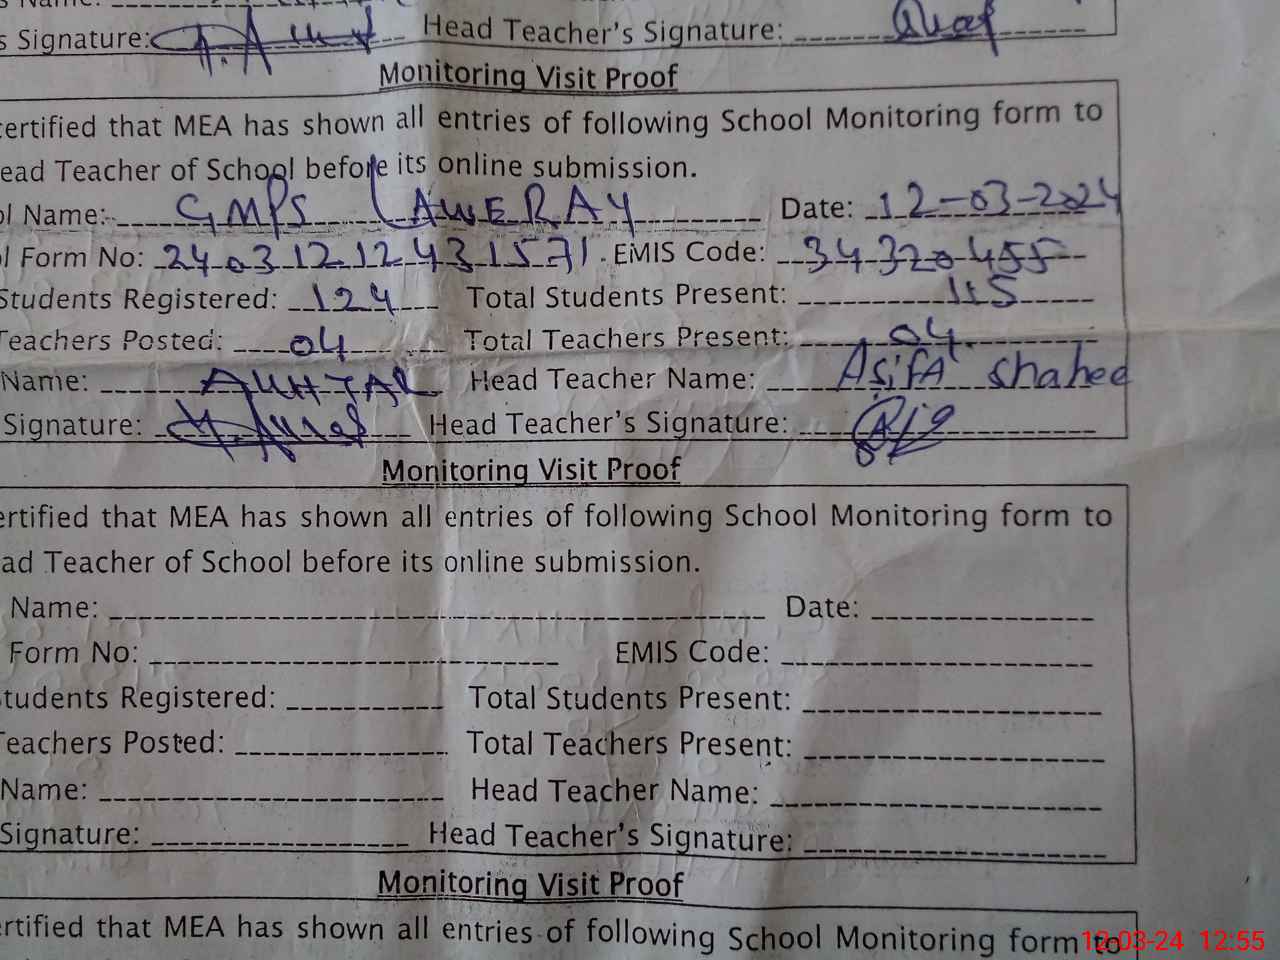 s Signature: Head Teacher's Signature:
Monitoring Visit Proof
certified that MEA has shown all entries of following School Monitoring form to
ead Teacher of School before its online submission.
ol Name: GMPS LAWERAY Date: 12-03-2024
l Form No: 24031212431571. EMIS Code: 34320455
Students Registered: 124 Total Students Present: 115
Teachers Posted: 04 Total Teachers Present: 04
Name: AKHTAR Head Teacher Name: Asifa Shahee
Signature: Head Teacher's Signature:
Monitoring Visit Proof
ertified that MEA has shown all entries of following School Monitoring form to
ad Teacher of School before its online submission.
Name: Date:
Form No: EMIS Code:
tudents Registered: Total Students Present:
Teachers Posted: Total Teachers Present:
Name: Head Teacher Name:
Signature: Head Teacher's Signature:
Monitoring Visit Proof
ertified that MEA has shown all entries of following School Monitoring form to
12-03-24 12:55